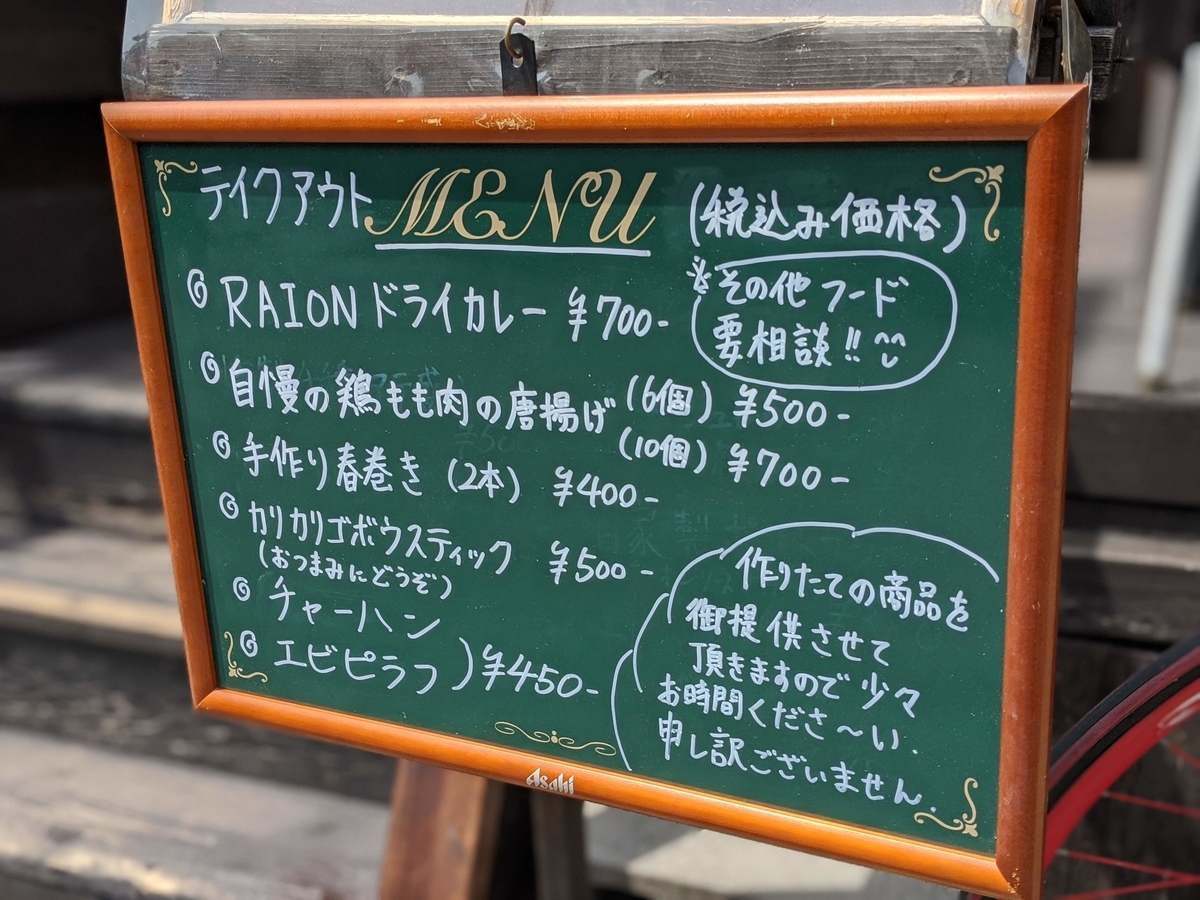 テイクアウト MENU (税込み価格)
RAION ドライカレー ¥700-
※その他 フード
要相談!!
自慢の鶏もも肉の唐揚げ (6個) ¥500-
(10個) ¥700-
手作り春巻き (2本) ¥400-
カリカリゴボウスティック ¥500-
(おつまみにどうぞ)
チャーハン
エビピラフ ) ¥450-
作りたての商品を
御提供させて
頂きますので少々
お時間くださ〜い.
申し訳ございません.
Asahi